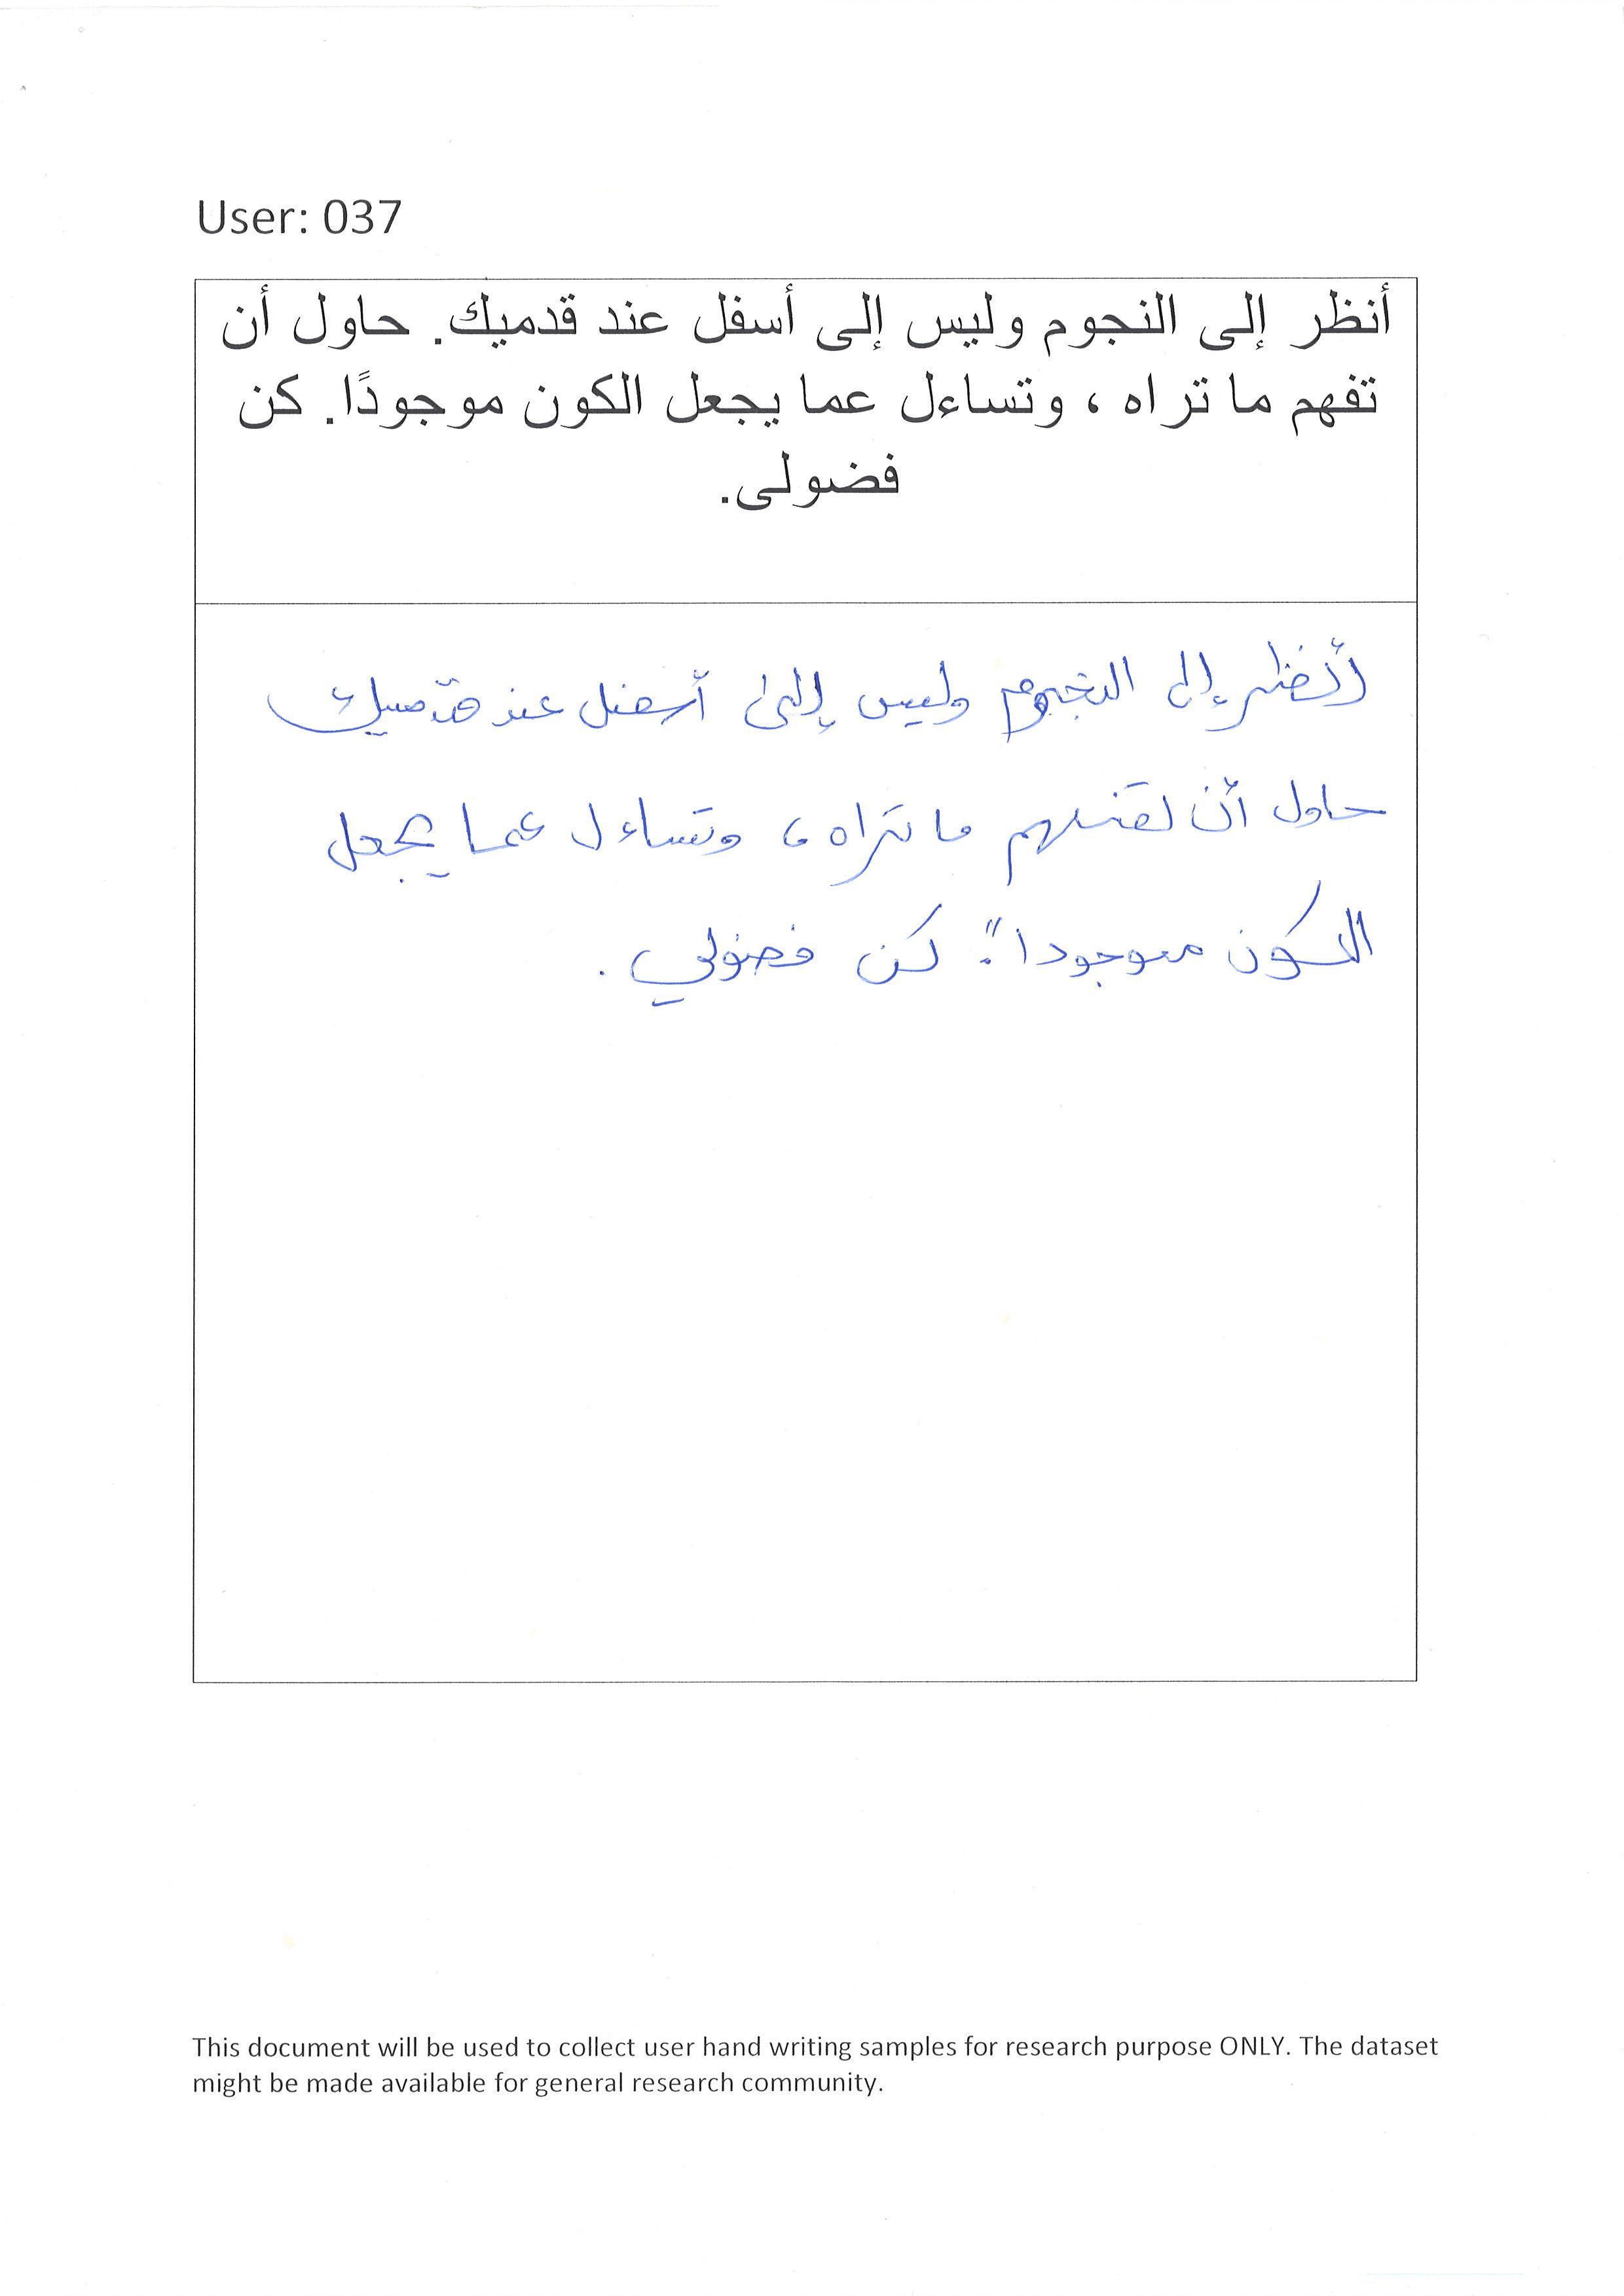 User: 037
أنظر إلى النجوم وليس إلى أسفل عند قدميك. حاول أن
تفهم ما تراه ، وتساءل عما يجعل الكون موجودًا. كن
فضولى.
أنظر إلى النجوم وليس إلى أسفل عند قدميك
حاول أن تفهم ما تراه ، وتساءل عما يجعل
الكون موجوداً. كن فضولي .
This document will be used to collect user hand writing samples for research purpose ONLY. The dataset
might be made available for general research community.